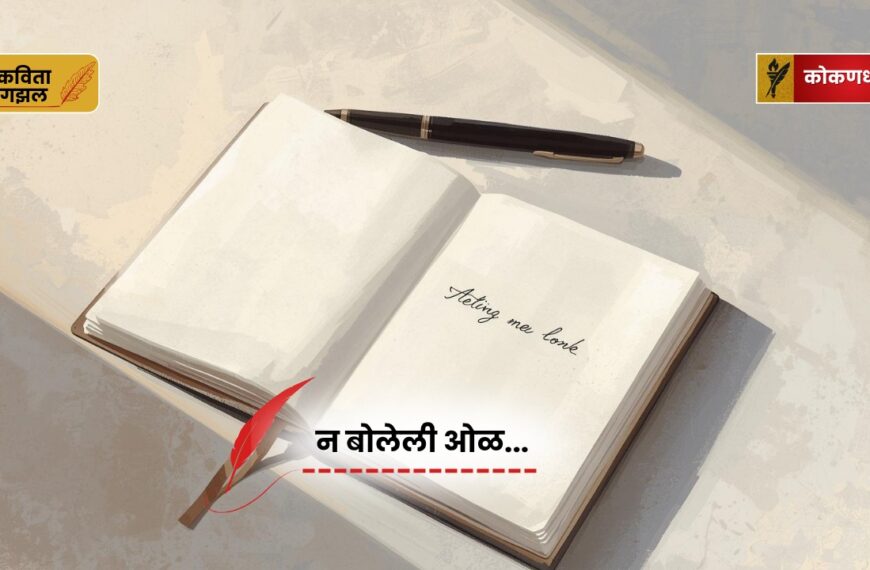 कविता
गझल
कोकणध
Aeting mea lonk
न बोलेली ओळ...